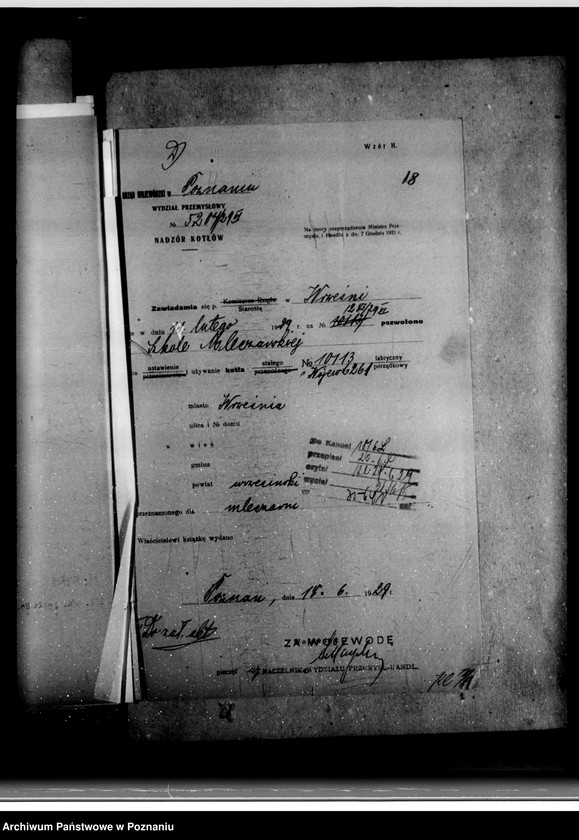 D
Wzór H.
18
URZĄD WOJEWÓDZKI w Poznaniu
WYDZIAŁ PRZEMYSŁOWY
№ 5204/29 II
NADZÓR KOTŁÓW
Na mocy rozporządzenia Ministra Prze-
mysłu i Handlu z dn. 7 Grudnia 1921 r.
Zawiadamia się p. Komisarza Rządu Starostę w Wrześni
w dniu lutego 1929 r. za № pozwolono
Szkole Mleczarskiej
na ustawienie i używanie kotła stałego № 10113 fabryczny
Wojew. 6261 porządkowy
miasto Września
ulica i № domu
w wieś
gmina
powiat wrzesiński
przeznaczonego dla mleczarni
Do Kancel.
przepisał
czytał
wysłał
Właścicielowi książkę wydano
Poznań, dnia 18. 6. 1929 r.
Do zał. akt
ZA WOJEWODĘ
pieczęć NACZELNIK WYDZIAŁU PRZEMYSŁ.-HANDL.
Archiwum Państwowe w Poznaniu